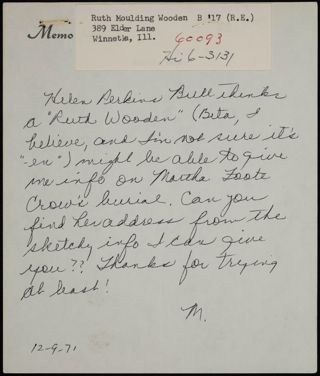 Memo
Ruth Moulding Wooden B '17 (R.E.)
389 Elder Lane
Winnetka, Ill.
60093
Hi 6-3131
Helen Perkins Bull thinks
a "Ruth Wooden" (Beta, I
believe, and I'm not sure it's
"-en") might be able to give
me info on Martha Foote
Crow's burial. Can you
find her address from the
sketchy info I can give
you?? Thanks for trying
at least!
M.
12-9-71